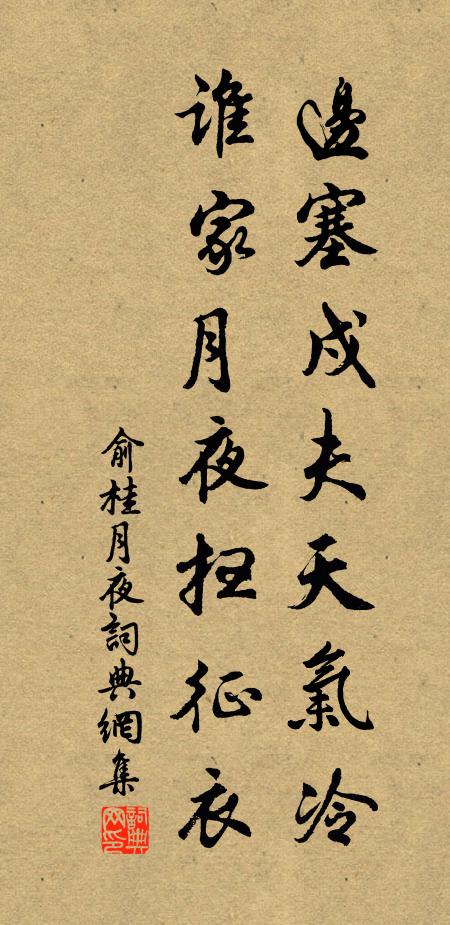 邊塞戍夫天氣冷
誰家月夜征衣
俞桂月夜詞典網集
詞典网印